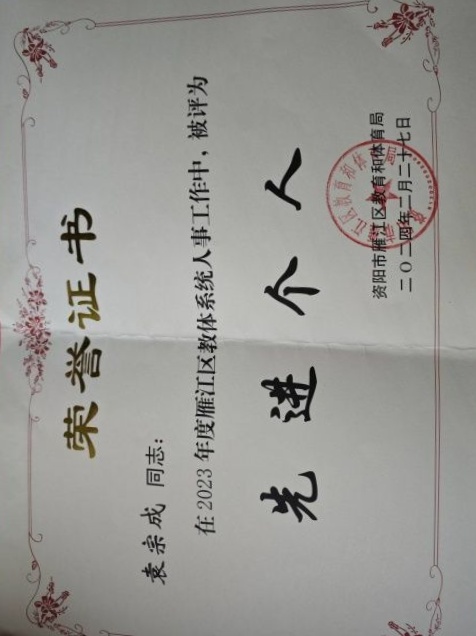 荣誉证书
袁宗成 同志：
在2023年度雁江区教体系统人事工作中，被评为
先进个人
资阳市雁江区教育和体育局
二〇二四年二月二十七日